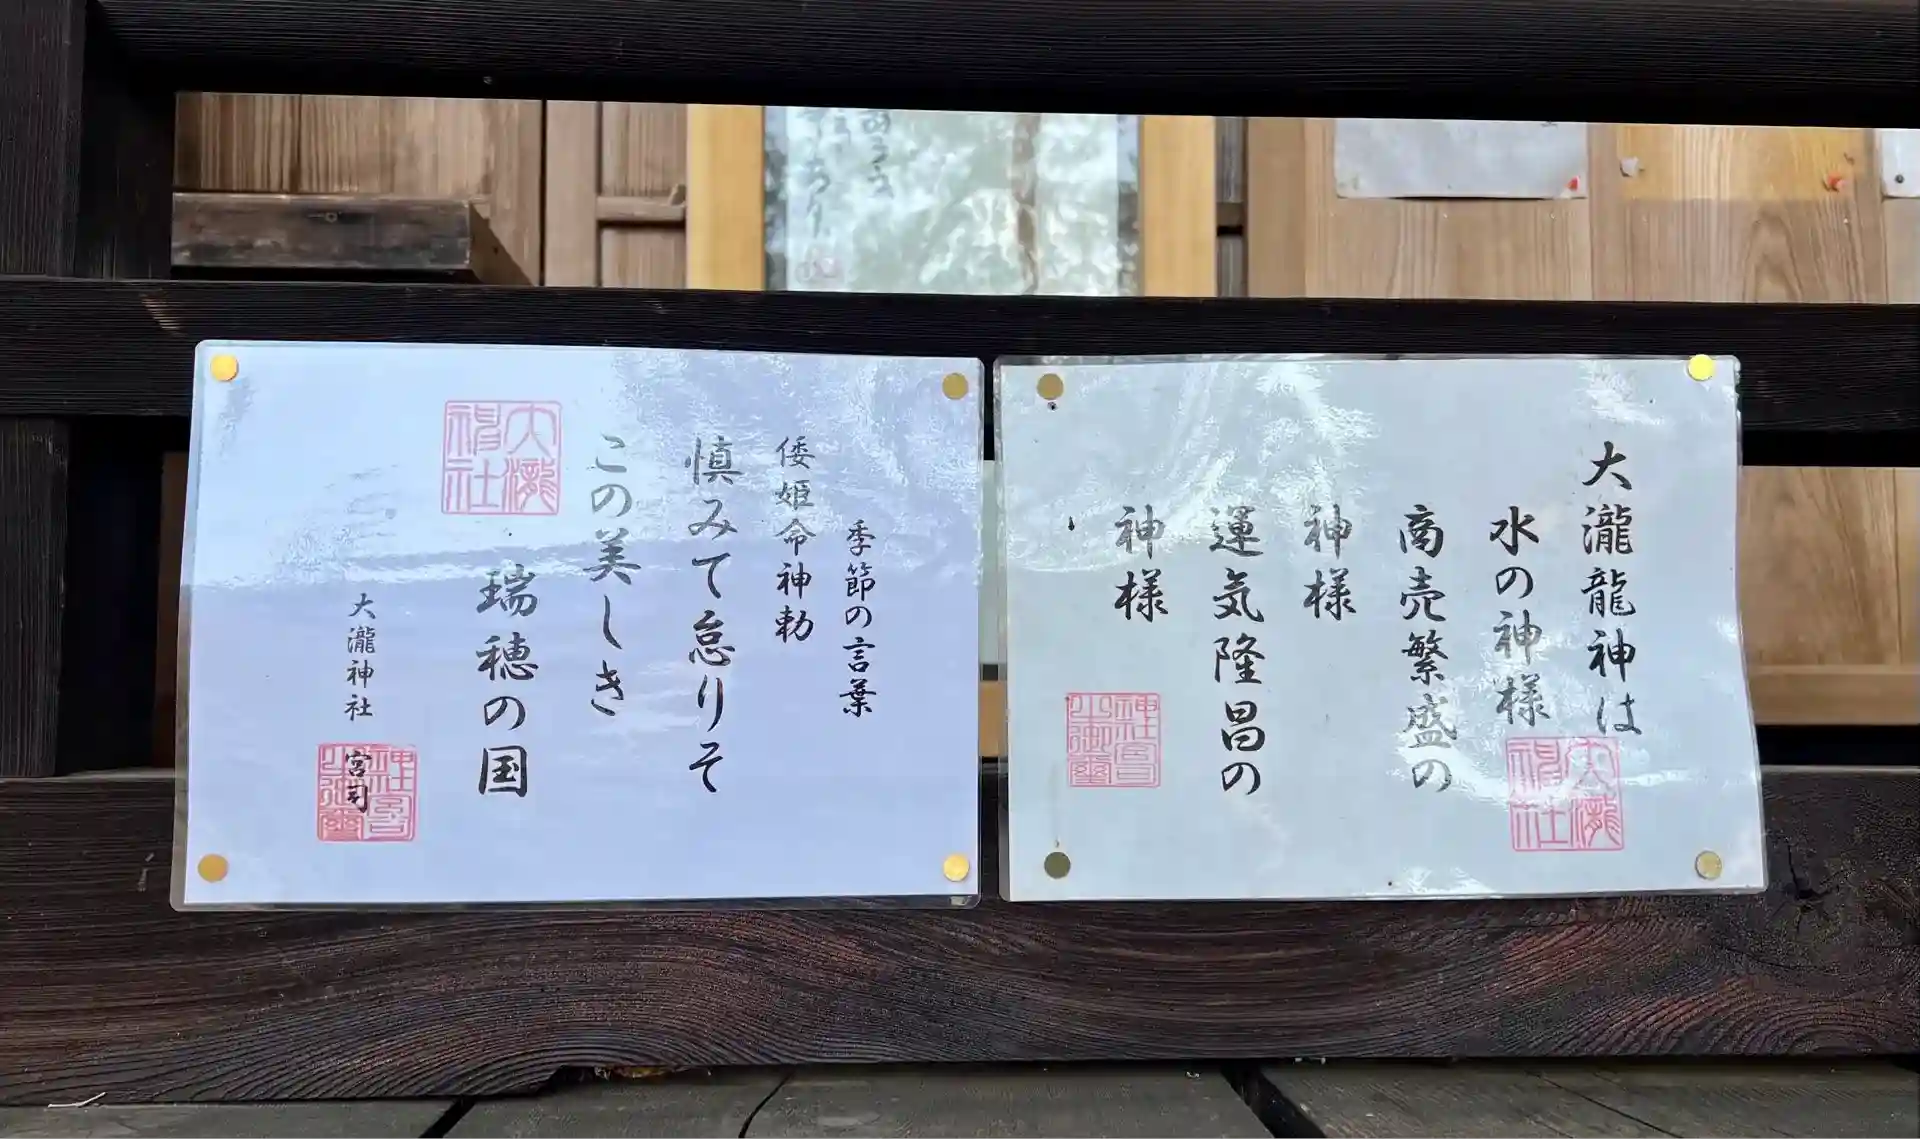 大瀧龍神は
水の神様
商売繁盛の
神様
運気隆昌の
神様
大瀧
神社
季節の言葉
倭姫命神勅
慎みて怠りそ
この美しき
瑞穂の国
大瀧神社
宮司
大瀧
神社